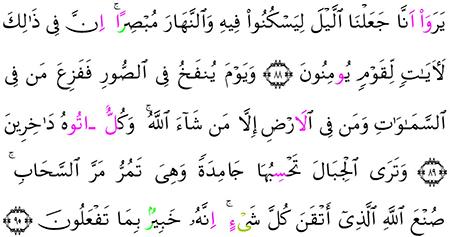 يَرَوَاْ اَنَّا جَعَلْنَا اَلَّيْلَ لِيَسْكُنُواْ فِيهِ وَالنَّهَارَ مُبْصِراًۚ اِنَّ فِى ذَٰلِكَ
لَأٓيَٰتٖ لِّقَوْمٖ يُومِنُونَ ٨٨ وَيَوْمَ يُنفَخُ فِى اِلصُّورِ فَفَزِعَ مَن فِى
اِلسَّمَٰوَٰتِ وَمَن فِى اِلَارْضِ إِلَّا مَن شَآءَ اَللَّهُۚ وَكُلٌّ ـاتُوهُ دَٰخِرِينَ
٨٩ وَتَرَى اَلْجِبَالَ تَحْسِبُهَا جَامِدَةٗ وَهِىَ تَمُرُّ مَرَّ اَلسَّحَابِۚ
صُنْعَ اَللَّهِ اِلَّذِىٓ أَتْقَنَ كُلَّ شَىْءٍۚ اِنَّهُۥ خَبِيرُۢ بِمَا تَفْعَلُونَ ٩٠